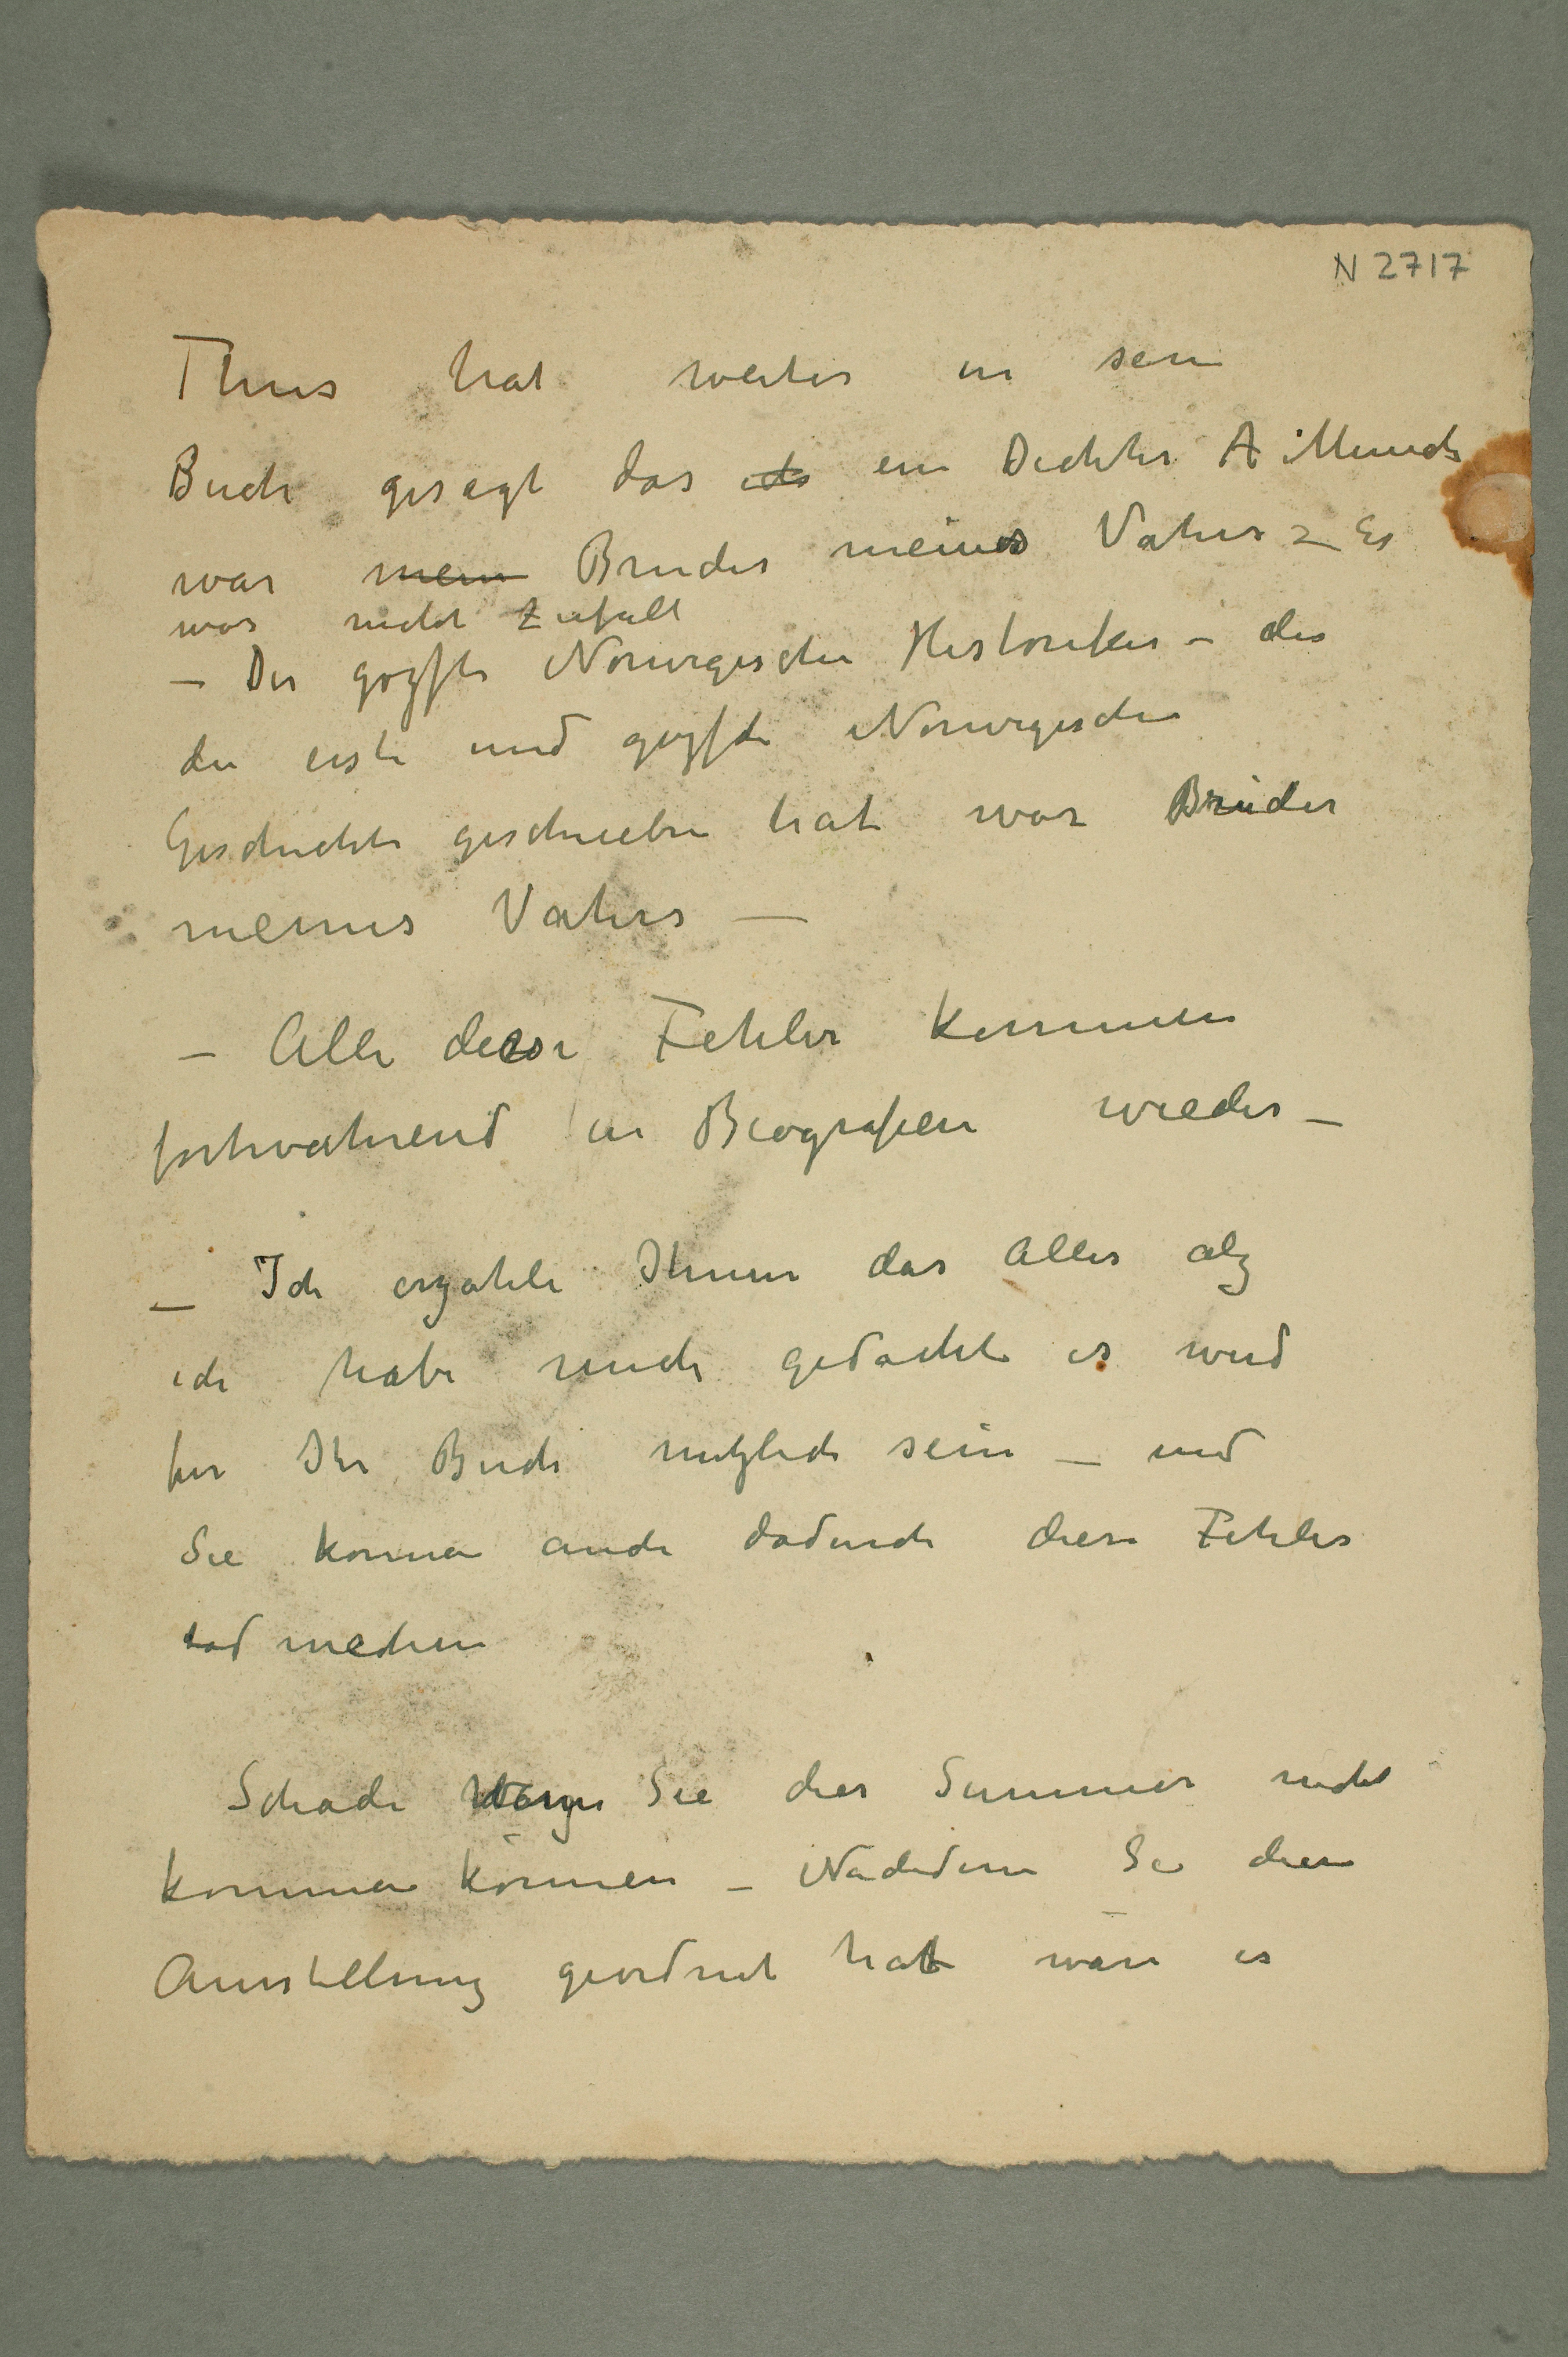 N 2717
Thiis hat weiter in sein
Buch gesagt das ich ein Dichter A Munch
war mein Bruder meines Vaters – Es
war nicht Zufall
– Der gozfte Norwegische Historiker – der
die erste und gozfte Norwegische
Geschichte geschrieben hat war Bruder
meines Vaters –
– Alle diese Fehler kommen
fortwahrend in Biografien wieder –
– Ich erzahle Ihnen das Alles alz
ich habe mich gedacht es wird
fur Ihr Buch nutzlich sein – und
Sie konnen auch dadurch diese Fehler
tod machen
Schade Sie dies Summer nicht
kommen können – Nachdem Sie diese
Ausstellung geordnet hat wäre es